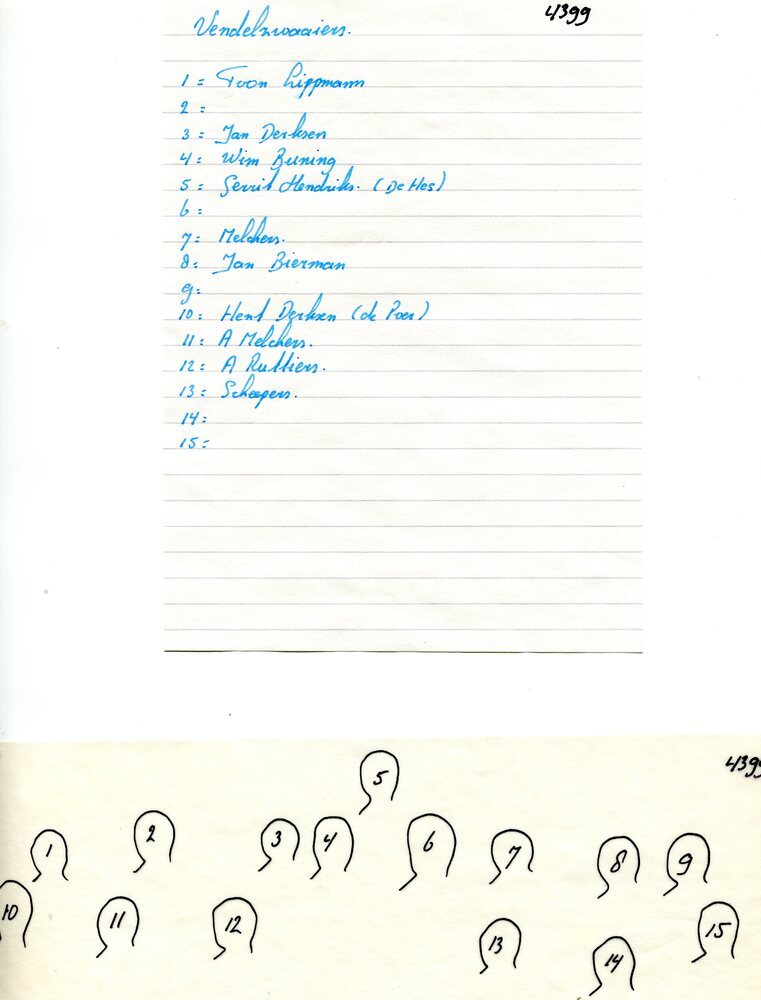 4399
Vendelzwaaiers.
1 = Toon Lippmann
2 =
3 = Jan Derksen
4 = Wim Buning
5 = Gerrit Hendriks. (De Hes)
6 =
7 = Melchers.
8 = Jan Bierman
9 =
10 = Hent Derksen (de Poer)
11 = A Melchers.
12 = A Ruttiers.
13 = Scheepers.
14 =
15 =
4399
5
1 2 3 4 6 7 8 9
10 11 12 13 14 15